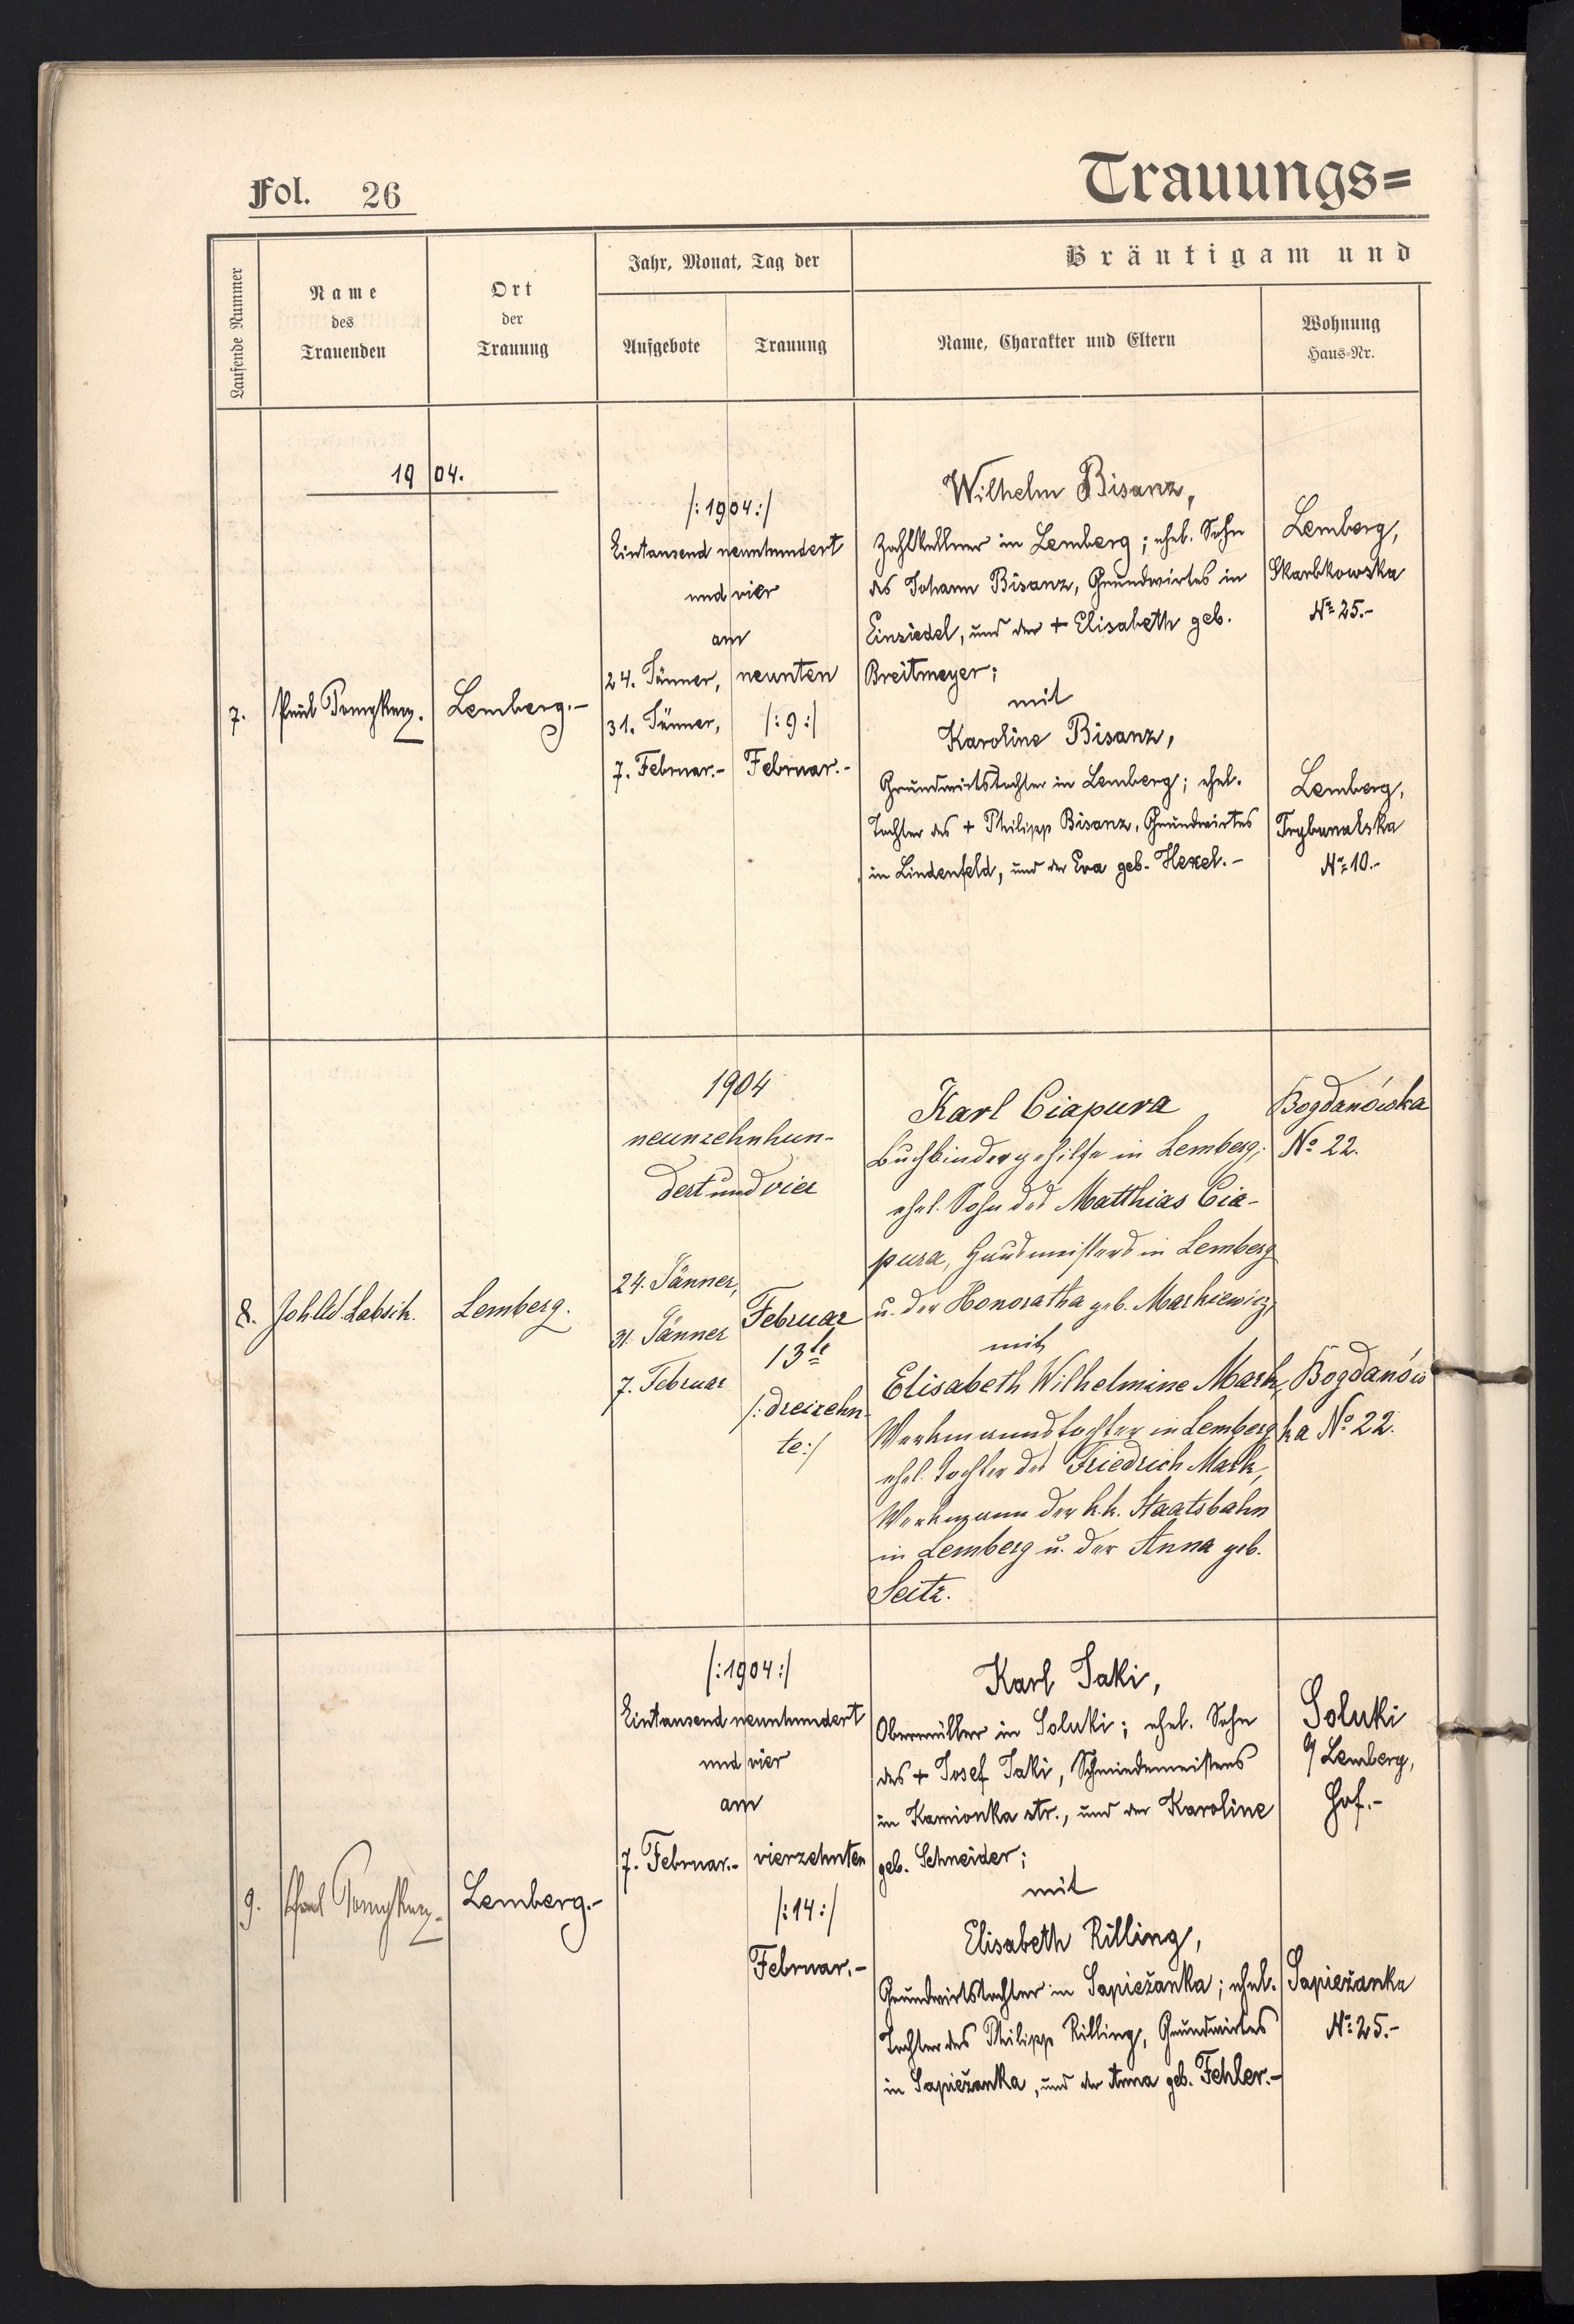 Fol. 26
Trauungs=
Laufende Nummer
Name
des
Trauenden
Ort
der
Trauung
Jahr, Monat, Tag der
Aufgebote
Trauung
Bräutigam und
Name, Charakter und Eltern
Wohnung
Haus-Nr.
1904.
7.
Lemberg.-
/:1904:/
Eintausend neunhundert
und vier
am
24. Jänner,
31. Jänner,
7. Februar.-
neunten
/:9:/
Februar.-
Wilhelm Bisanz,
Zahlkellner in Lemberg; ehel. Sohn
des Johann Bisanz, Grundwirtes in
Einsiedel, und der + Elisabeth geb.
Breitmeyer;
mit
Karoline Bisanz,
Grundwirtstochter in Lemberg; ehel.
Tochter des + Philipp Bisanz, Grundwirtes
in Lindenfeld, und der Eva geb. Hexel.-
Lemberg,
Skarbkowska
No 25.-
Lemberg,
Trybunalska
No 10.-
8.
Lemberg.
1904
neunzehnhun-
dert und vier
24. Jänner,
31. Jänner
7. Februar
Februar
13te
/:dreizehn-
te:/
Karl Ciapura
Buchbindergehilfe in Lemberg;
ehel. Sohn des Matthias Cia-
pura, Hausmeisters in Lemberg
u. der Honoratha geb. Markiewicz,
mit
Elisabeth Wilhelmine Mark,
Werkmannstochter in Lemberg
ehel. Tochter des Friedrich Mark,
Werkmann der k.k. Staatsbahn
in Lemberg u. der Anna geb.
Seitz.
Bogdanówka
No 22.
Bogdanów
ka No 22.
9.
Lemberg.-
/:1904:/
Eintausend neunhundert
und vier
am
7. Februar.-
vierzehnten
/:14:/
Februar.-
Karl Jaki,
Obermüller in Soluki; ehel. Sohn
des + Josef Jaki, Schmiedemeisters
in Kamionka str., und der Karoline
geb. Schneider;
mit
Elisabeth Rilling,
Grundwirtstochter in Sapieżanka; ehel.
Tochter des Philipp Rilling, Grundwirtes
in Sapieżanka, und der Anna geb. Fehler.-
Soluki
Lemberg,
Hof.-
Sapieżanka
No 25.-